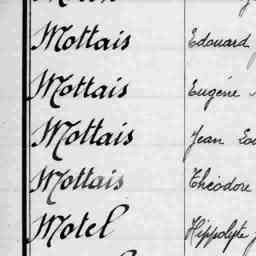 Mottais Edouard
Mottais Eugène
Mottais Jean
Mottais Théodore
Motel Hippolyte